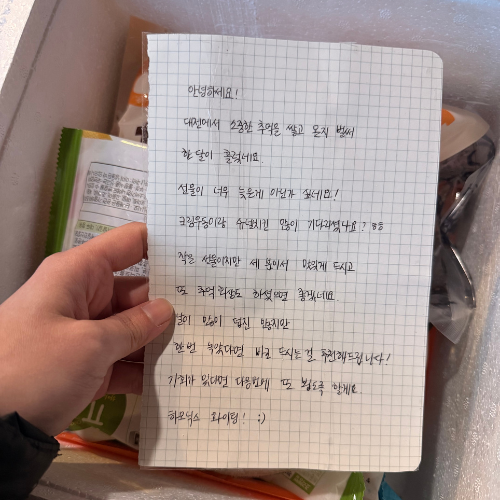 안녕하세요!
대전에서 소중한 추억을 쌓고 온지 벌써
한달이 흘렀네요.
선물이 너무 늦은게 아닌가 싶네요!
크림우동이랑 유린치킨 많이 기다리셨나요? ㅎㅎ
작은 선물이지만 세 분이서 맛있게 드시고
또 추억회상도 하셨으면 좋겠네요.
많이 많지만
한번 녹았다면 바로 드시는걸 추천해드립니다!
기회가 있다면 다음번에 또 뵙도록 할게요.
하모닉스 화이팅! :)